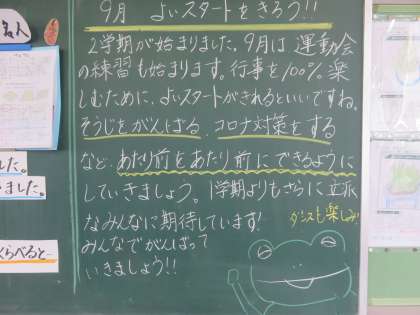 9月 よいスタートをきろう!!
2学期が始まりました。9月は運動会
の練習も始まります。行事を100%楽
しむために、よいスタートがきれるといいですね。
そうじをがんばる、コロナ対策をする
など、あたり前をあたり前にできるように
していきましょう。1学期よりもさらに立派
なみんなに期待しています!
ダンスも楽しみ!
みんなでがんばって
いきましょう!!
名人
した。
ました。
くらべると…